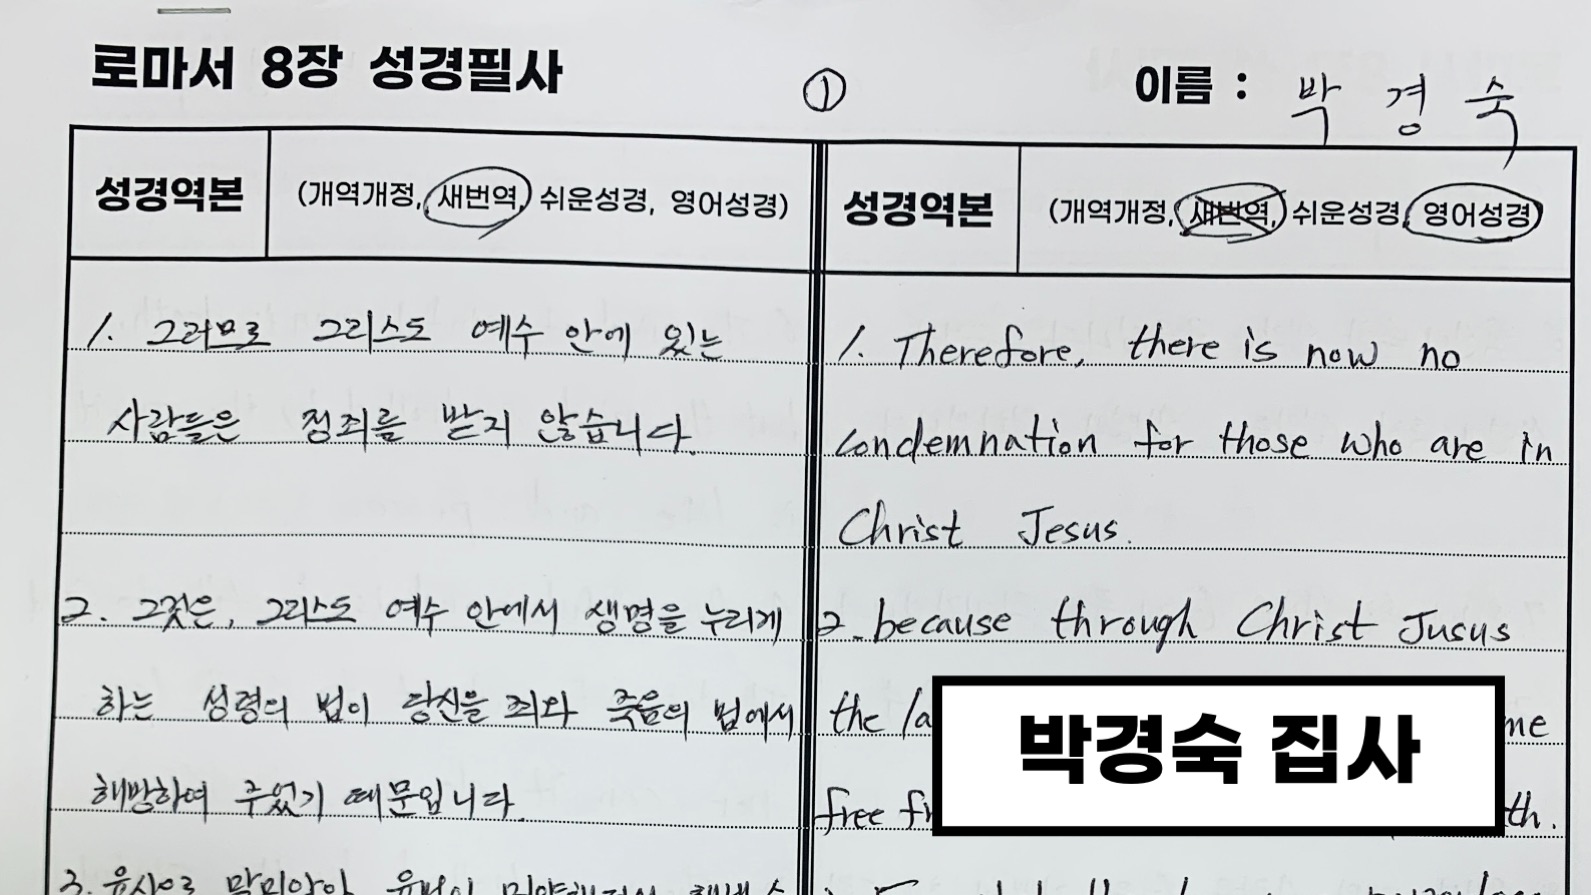 로마서 8장 성경필사
①
이름 : 박 경 숙
성경역본 (개역개정, 새번역, 쉬운성경, 영어성경)
1. 그러므로 그리스도 예수 안에 있는
사람들은 정죄를 받지 않습니다.
2. 그것은, 그리스도 예수 안에서 생명을 누리게
하는 성령의 법이 당신을 죄와 죽음의 법에서
해방하여 주었기 때문입니다.
3. 육신으로 말미암아 율법이 미약해져서
성경역본 (개역개정, 새번역, 쉬운성경, 영어성경)
1. Therefore, there is now no
condemnation for those who are in
Christ Jesus.
2. because through Christ Jusus
the me
free
박경숙 집사